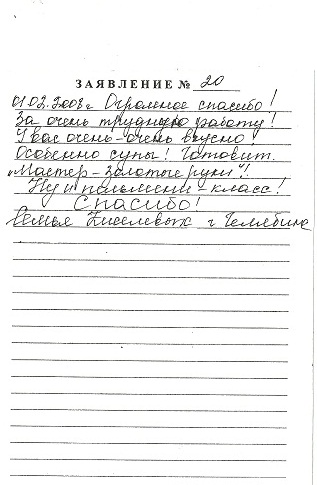 ЗАЯВЛЕНИЕ № 20
01.02.2003 г Огромное спасибо!
За очень трудную работу!
У вас очень-очень вкусно!
Особенно супы! Готовит
„Мастер-золотые руки"!
Ну и пельмени-класс!
Спасибо!
Семья Киселевых г Челябинс